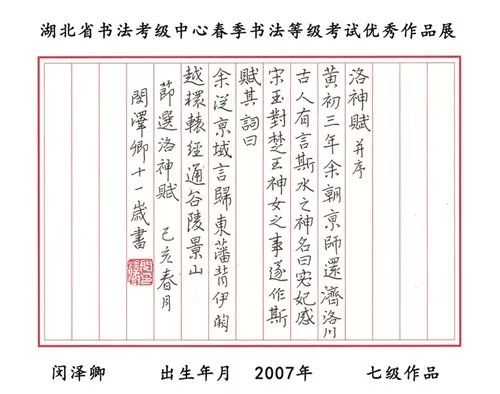 湖北省书法考级中心春季书法等级考试优秀作品展
洛神賦 并序
黄初三年余朝京師還濟洛川
古人有言斯水之神名曰宓妃感
宋玉對楚王神女之事遂作斯
賦其詞曰
余從京域言歸東藩背伊闕
越轘轅經通谷陵景山
節選洛神賦 己亥春月
閔澤卿十一歲書
闵泽卿 出生年月 2007年 七级作品